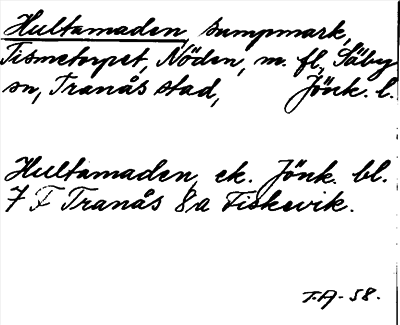 Hultamaden, sumpmark,
Tismetorpet, Nöden, m. fl., Säby
sn, Tranås stad, Jönk. l.
Hultamaden, ek. Jönk. bl.
7 F Tranås 8a Fiskevik.
T.A. 58.